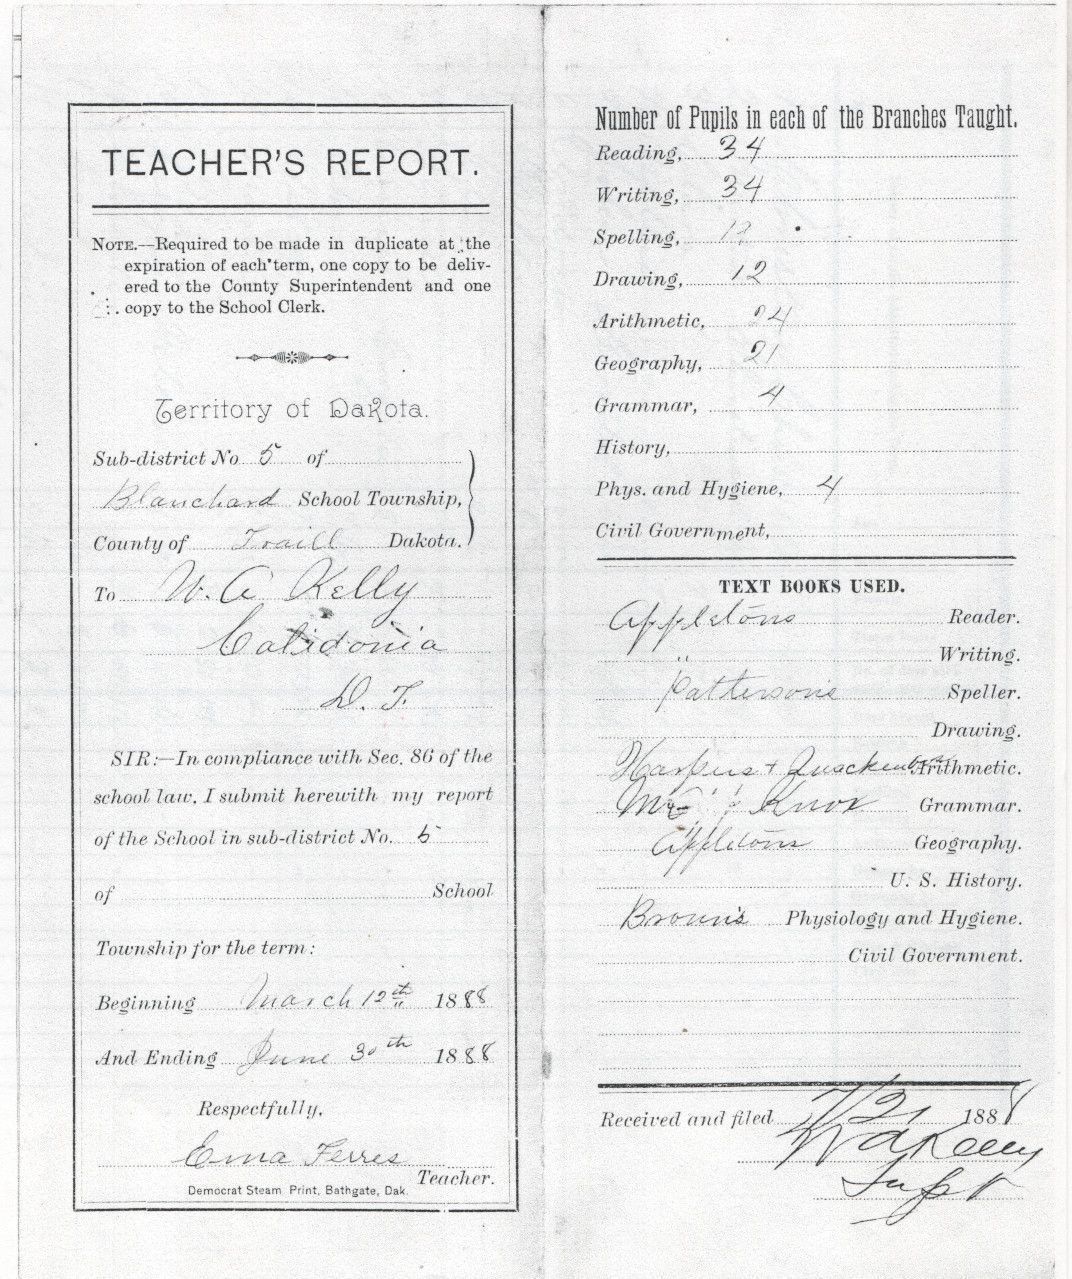 TEACHER'S REPORT.
NOTE.—Required to be made in duplicate at the
expiration of each term, one copy to be deliv-
ered to the County Superintendent and one
copy to the School Clerk.
Territory of Dakota.
Sub-district No 5 of
Blanchard School Township,
County of Traill Dakota.
To W. A Kelly
Calidonia
D. T.
SIR:—In compliance with Sec. 86 of the
school law, I submit herewith my report
of the School in sub-district No. 5
of School
Township for the term:
Beginning March 12th 1888
And Ending June 30th 1888
Respectfully,
Ema Ferres
Teacher.
Democrat Steam Print, Bathgate, Dak.
Number of Pupils in each of the Branches Taught.
Reading, 34
Writing, 34
Spelling, 12
Drawing, 12
Arithmetic, 24
Geography, 21
Grammar, 4
History,
Phys. and Hygiene, 4
Civil Government,
TEXT BOOKS USED.
Appletons Reader.
" Writing.
Pattersons Speller.
Drawing.
Harpers + Arithmetic.
& Knox Grammar.
Appletons Geography.
U. S. History.
Brown's Physiology and Hygiene.
Civil Government.
Received and filed 7/21 1888
W A Kelly
Supt